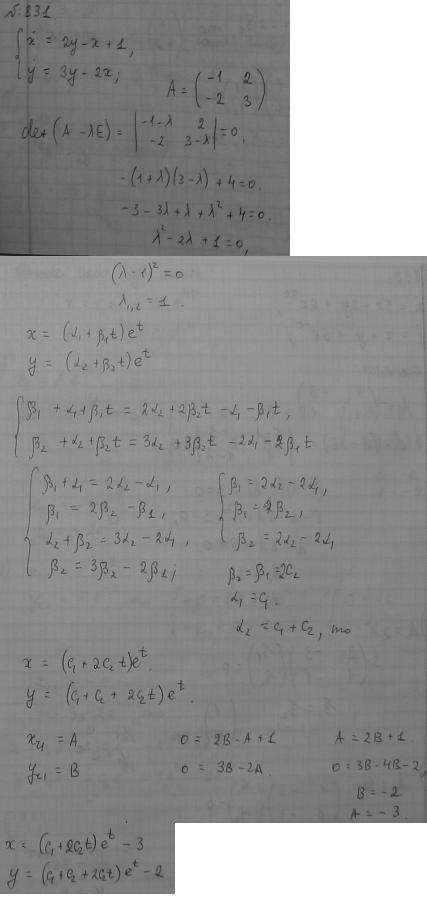 N: 831
{ ẋ = 2y - x + 1,
{ ẏ = 3y - 2x;
A = ( -1 2
-2 3 )
det (A - λE) = | -1-λ 2
-2 3-λ | = 0,
-(1+λ)(3-λ) + 4 = 0.
-3 - 3λ + λ + λ² + 4 = 0.
λ² - 2λ + 1 = 0,
(λ - 1)² = 0
λ₁,₂ = 1.
x = (α₁ + β₁t) eᵗ
y = (α₂ + β₂t) eᵗ
{ β₁ + α₁ + β₁t = 2α₂ + 2β₂t - α₁ - β₁t,
{ β₂ + α₂ + β₂t = 3α₂ + 3β₂t - 2α₁ - 2β₁t
{ β₁ + α₁ = 2α₂ - α₁,
β₁ = 2β₂ - β₁,
α₂ + β₂ = 3α₂ - 2α₁,
β₂ = 3β₂ - 2β₁;
{ β₁ = 2α₂ - 2α₁,
β₁ = β₂,
β₂ = 2α₂ - 2α₁
β₂ = β₁ = 2C₂
α₁ = C₁.
α₂ = C₁ + C₂, то
x = (C₁ + 2C₂t)eᵗ.
y = (C₁ + C₂ + 2C₂t) eᵗ.
xч = A 0 = 2B - A + 1 A = 2B + 1.
yч = B 0 = 3B - 2A. 0 = 3B - 4B - 2,
B = -2
A = -3.
x = (C₁ + 2C₂t) eᵗ - 3
y = (C₁ + C₂ + 2C₂t) eᵗ - 2